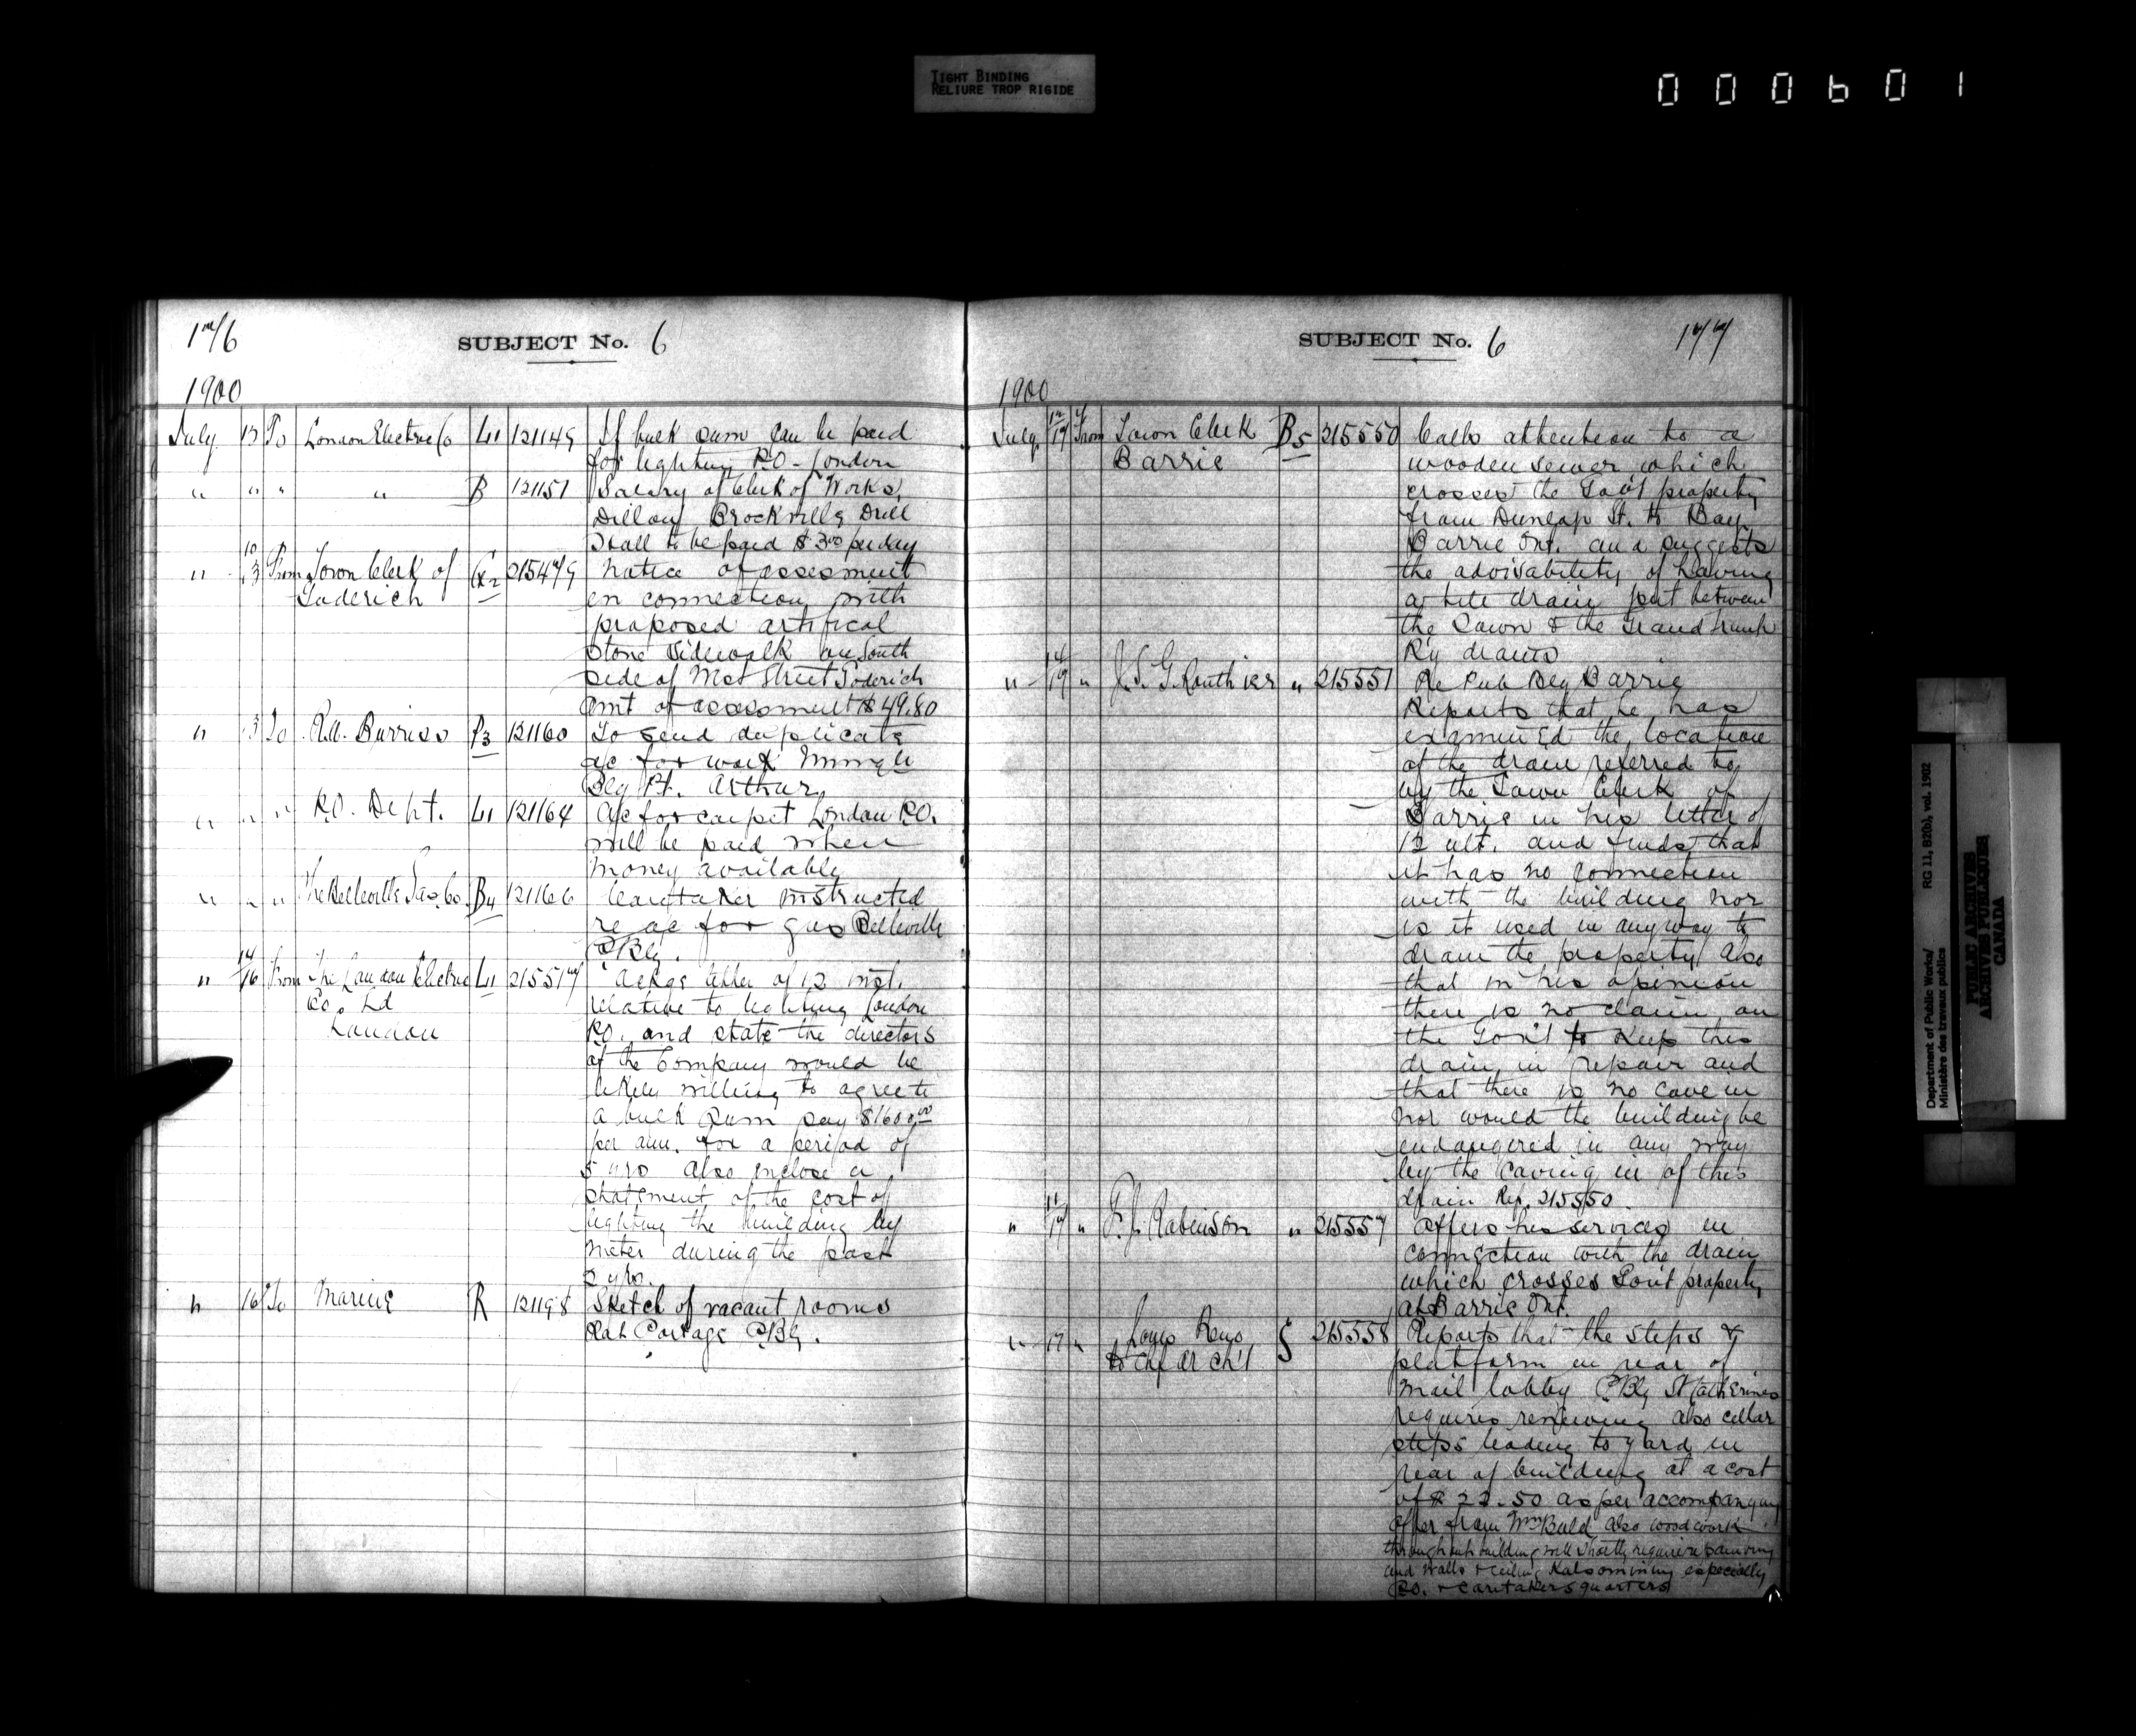 TIGHT BINDING
RELIURE TROP RIGIDE
000601
176
SUBJECT No. 6
1900
July 13 To London Electric Co L1 121149 If bulk sum can be paid
for lighting P.O. London
" " " " B 121151 Salary of Clerk of Works,
Dillon, Brockville Drill
Hall to be paid $3.00 per day
" 10/13 From Town Clerk of G2 215479 Notice of assessment
Goderich in connection with
proposed artifical
stone sidewalk on South
side of West Street Goderich
amt of assessment $49.80
" 13 To R.A. Burriss P3 121160 To send duplicate
a/c for work
Blg Pt. Arthur
" " " P.O. Dept. L1 121164 A/c for carpet London P.O.
will be paid when
money available
" " " The Belleville Gas Co. B4 121166 Caretaker instructed
re a/c for gas Belleville
P Blg.
" 14/16 From The London Electric L1 215517 Ackgs letter of 12 inst.
Co. Ld relative to lighting London
London P.O. and state the directors
of the Company would be
likely willing to agree to
a bulk sum say $1600.00
per ann. for a period of
5 yrs also inclose a
statement of the cost of
lighting the building by
meter during the past
2 yrs.
" 16 To Marine R 121198 Sketch of vacant rooms
Rat Portage P Blg.
SUBJECT No. 6
177
1900
July 12/17 From Town Clerk B5 215550 Calls attention to a
Barrie wooden sewer which
crosses the Gov't property
from Dunlap St. to Bay
Barrie Ont. and suggests
the advisability of having
a tile drain put between
the Town & the Grand Trunk
Ry drains
" 14/17 " J.S.G. Routhier " 215551 Re Pub Blg Barrie
Reports that he has
examined the location
of the drain referred to
by the Town Clerk of
Barrie in his letter of
12 ult. and finds that
it has no connection
with the building nor
is it used in anyway to
drain the property also
that in his opinion
there is no claim on
the Gov't to keep this
drain in repair and
that there is no cave in
nor would the building be
endangered in any way
by the caving in of this
drain Rep. 215550.
" 11/17 " F.J. Robinson " 215557 Offers his services in
connection with the drain
which crosses Gov't property
at Barrie Ont.
" 17 " Reports that the steps &
to Chf Arch't 215558 platform in rear of
mail lobby P Blg St Catherines
requires renewing also cellar
steps leading to yard in
rear of building at a cost
of $22.50 as per accompanying
offer from Wm Bald also woodwork
throughout building will shortly require repainting
and walls & ceiling Kalsomining especially
P.O. & caretakers quarters
Department of Public Works/
Ministère des travaux publics
RG 11, B2(b), vol. 1902
PUBLIC ARCHIVES
ARCHIVES PUBLIQUES
CANADA